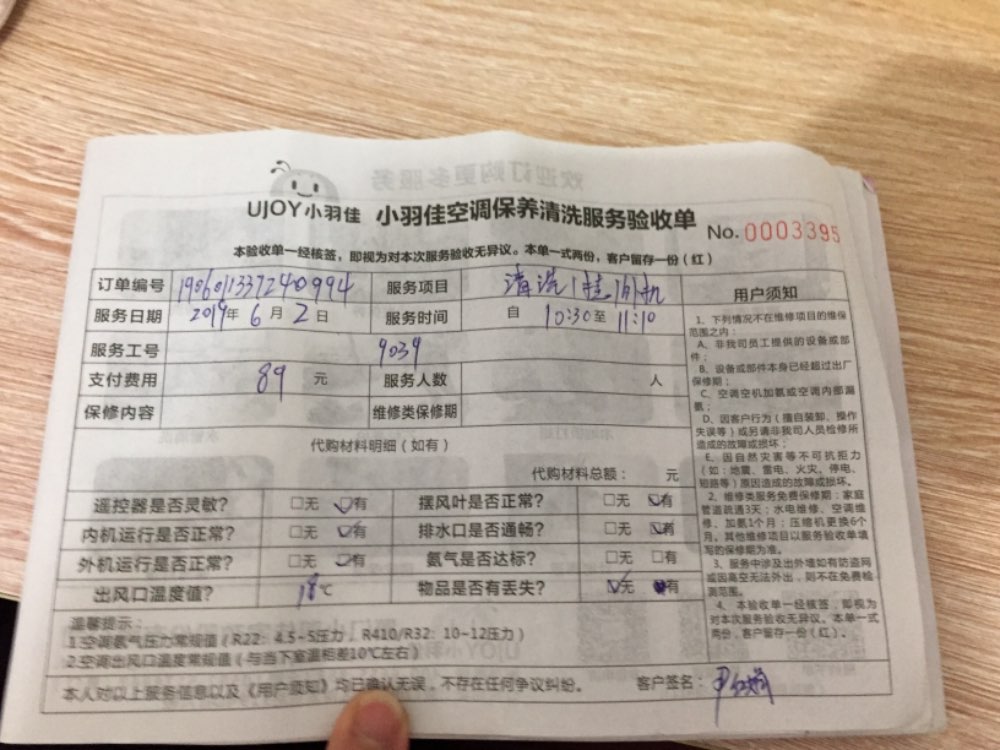 UJOY小羽佳 小羽佳空调保养清洗服务验收单 No.0003395
本验收单一经核签，即视为对本次服务验收无异议。本单一式两份，客户留存一份（红）
订单编号 190601337240994 服务项目 清洗1挂内机
服务日期 2019年6月2日 服务时间 自10:30至11:10
服务工号 9039
支付费用 89元 服务人数 人
保修内容 维修类保修期
代购材料明细（如有）
代购材料总额： 元
遥控器是否灵敏？ □无 ☑有 摆风叶是否正常？ □无 ☑有
内机运行是否正常？ □无 ☑有 排水口是否通畅？ □无 ☑有
外机运行是否正常？ □无 ☑有 氨气是否达标？ □无 □有
出风口温度值？ 18℃ 物品是否有丢失？ ☑无 有
温馨提示：
1.空调氨气压力常规值（R22：4.5-5压力，R410/R32：10-12压力）
2.空调出风口温度常规值（与当下室温相差10℃左右）
本人对以上服务信息以及《用户须知》均已确认无误，不存在任何争议纠纷。 客户签名：
用户须知
1、下列情况不在维修项目的维保
范围之内：
A、非我司员工提供的设备或部
件；
B、设备或部件本身已经超过出厂
保修期；
C、空调空机加氨或空调内部漏
氨；
D、因客户行为（擅自装卸、操作
失误等）或另请非我司人员检修所
造成的故障或损坏；
E、因自然灾害等不可抗拒力
（如：地震、雷电、火灾、停电、
短路等）原因造成的故障或损坏。
2、维修类服务免费保修期：家庭
管道疏通3天；水电维修、空调维
修、加氨1个月；压缩机更换6个
月。其他维修项目以服务验收单填
写的保修期为准。
3、服务中涉及出外墙如有防盗网
或因高空无法外出，则不在免费检
测范围。
4、本验收单一经核签，即视为
对本次服务验收无异议。本单一式
两份，客户留存一份（红）。